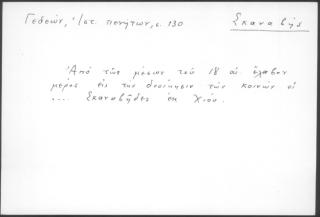 Γεδεών, Ἱστ. πενήτων, σ. 130
Σκαναβής
Ἀπό τῶν μέσων τοῦ 18 αἰ. ἔλαβον
μέρος εἰς τήν διοίκησιν τῶν κοινῶν οἱ
... Σκαναβῆδες ἐκ Χίου.